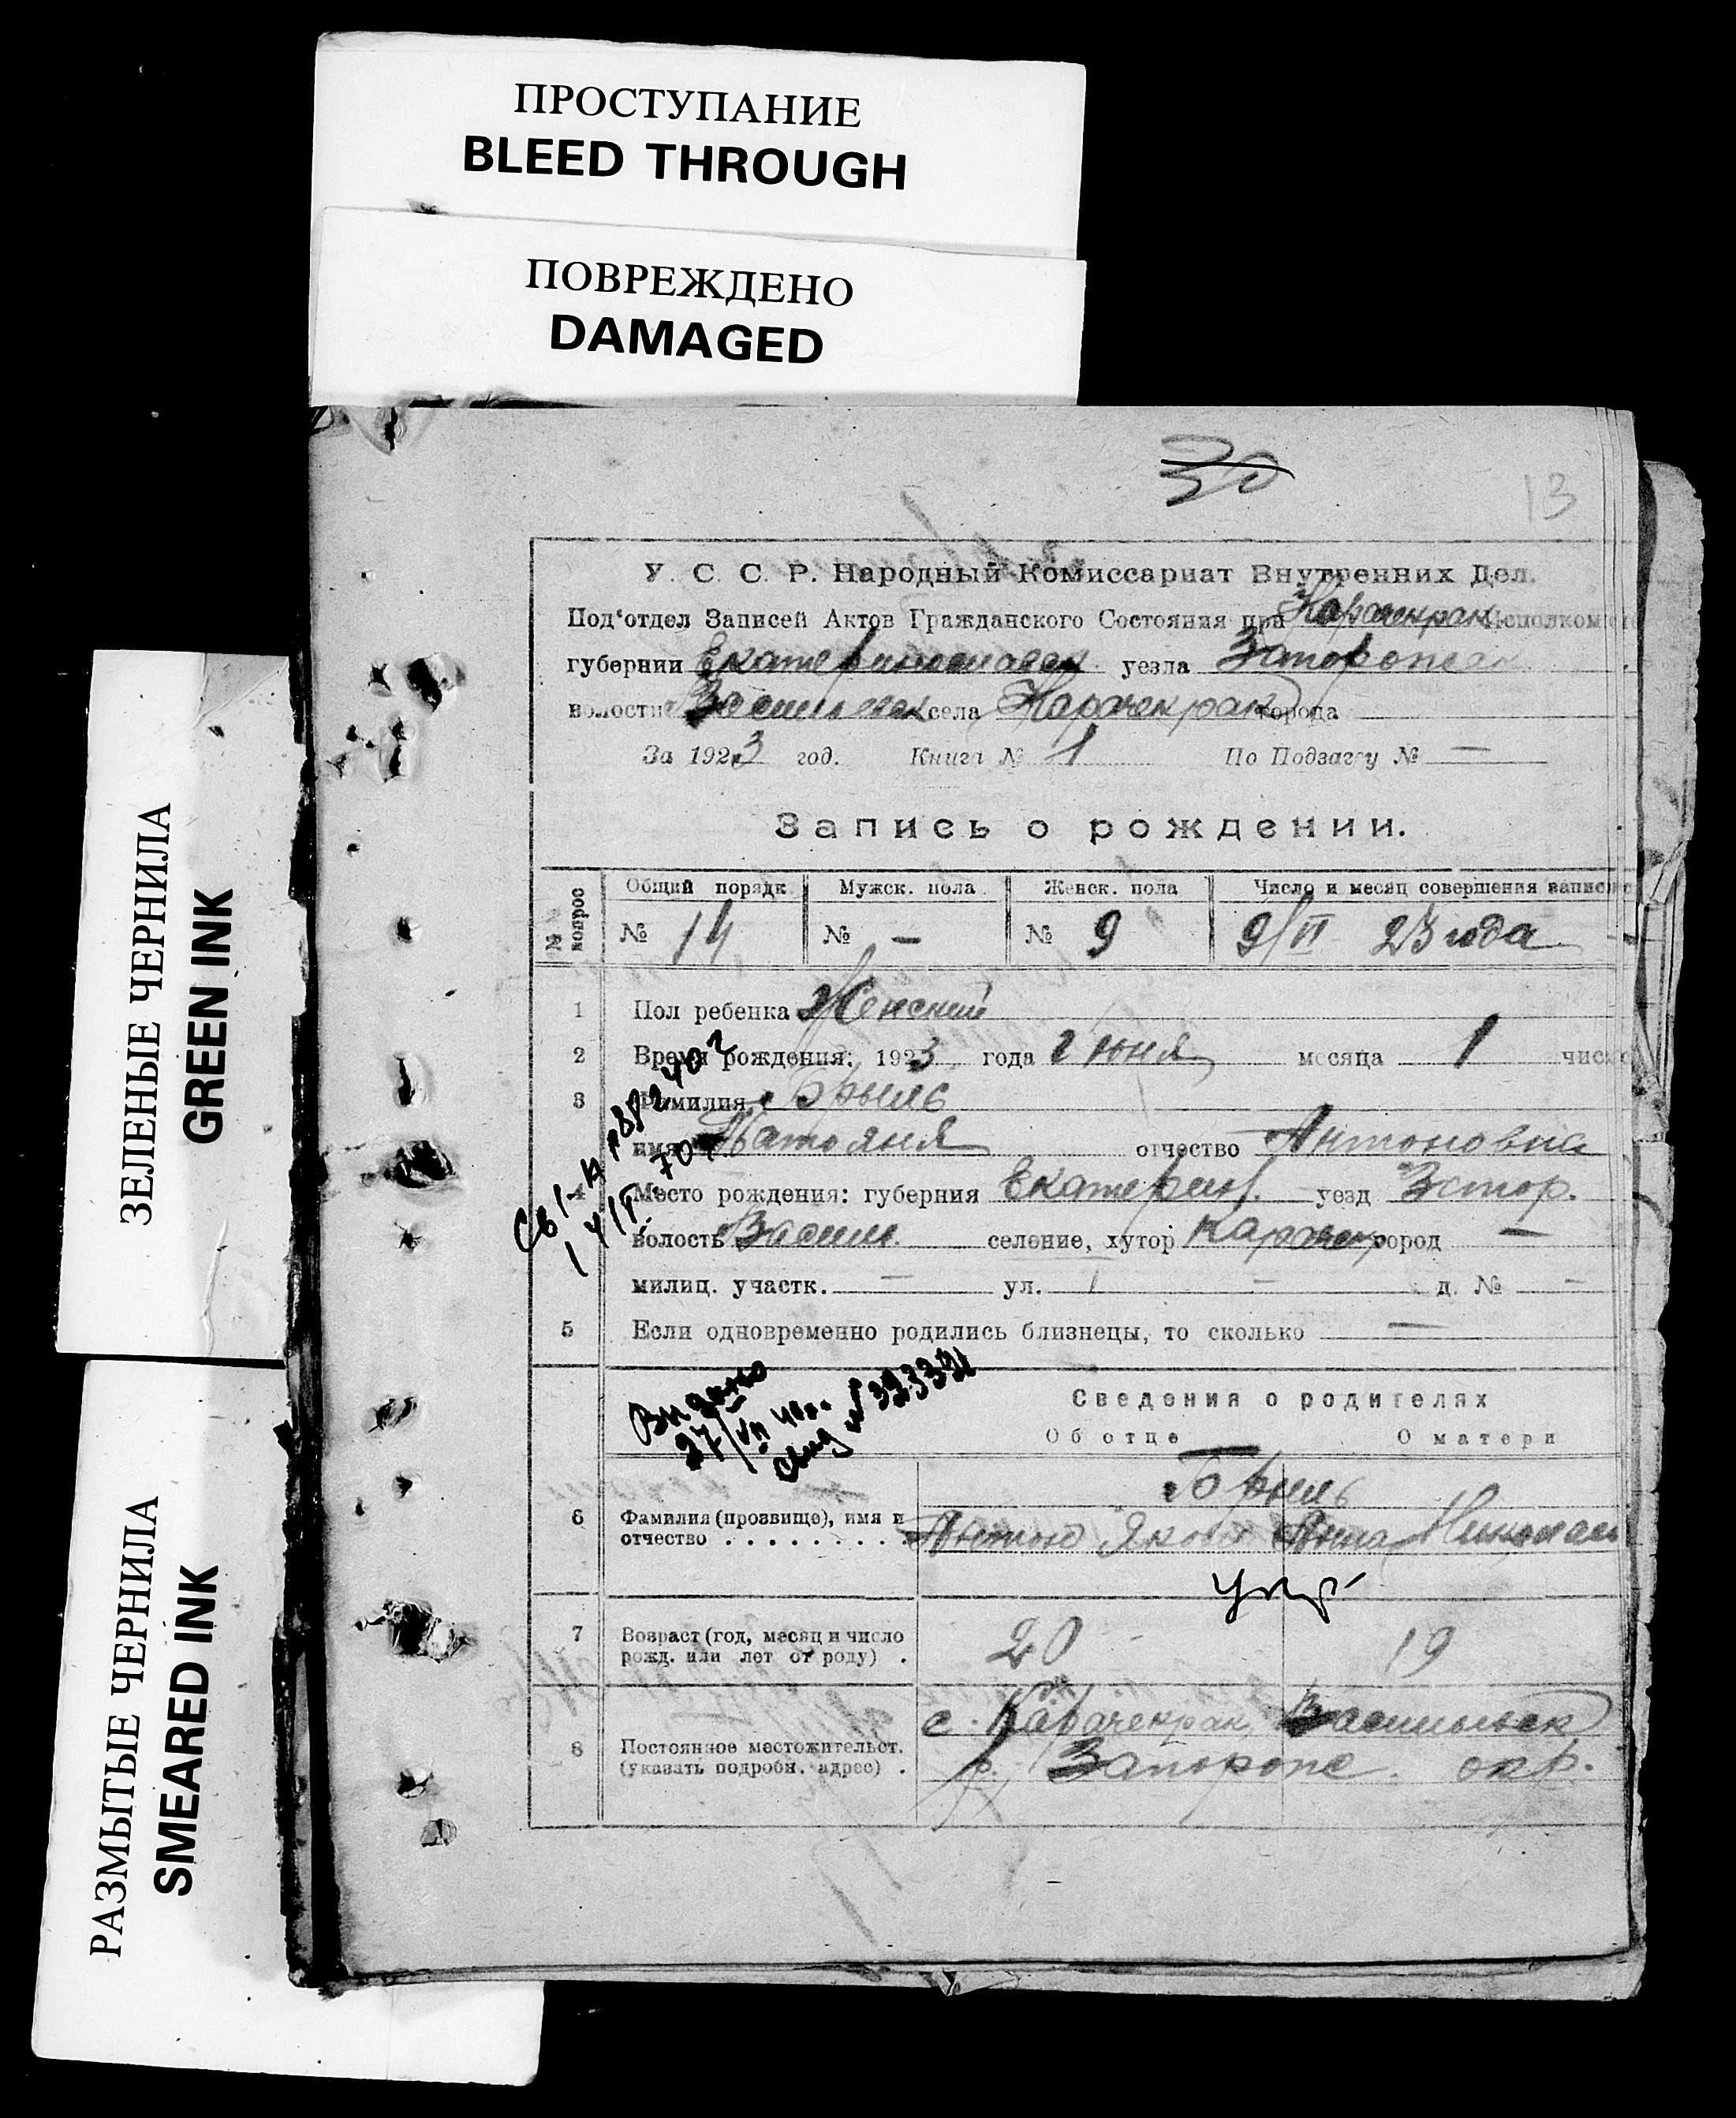 ПРОСТУПАНИЕ
BLEED THROUGH
ПОВРЕЖДЕНО
DAMAGED
ЗЕЛЕНЫЕ ЧЕРНИЛА
GREEN INK
РАЗМЫТЫЕ ЧЕРНИЛА
SMEARED INK
30
13
У. С. С. Р. Народный Комиссариат Внутренних Дел.
Под'отдел Записей Актов Гражданского Состояния при Карачекрак
губернии Екатеринославск уезда Запорожск
волости Васильевск села Карачекрак города
За 1923 год. Книга № 1 По Подзагсу № —
Запись о рождении.
№ вопрос
Общий порядк. Мужск. пола Женск. пола Число и месяц совершения записи
№ 14 № — № 9 9/VI 23 года
1 Пол ребенка Женский
2 Время рождения: 1923 года Июня месяца 1 число
3 Фамилия Брыль
имя Татояня отчество Антоновна
4 Место рождения: губерния Екатерин. уезд Запор.
волость Васил. селение, хутор Карачекр город —
милиц. участк. — ул. — д. № —
5 Если одновременно родились близнецы, то сколько —
Видано
27/VII 40г.
свид № 323331
Сведения о родителях
Об отце О матери
Брыль
6 Фамилия (прозвище), имя и отчество . . . . . . . . . Антон Яков Анна Николаев
укр.
7 Возраст (год, месяц и число рожд. или лет от роду) . 20 19
8 Постоянное местожительст. (указать подробн. адрес) . с. Карачекрак Васильевск
р. Запорож. окр.